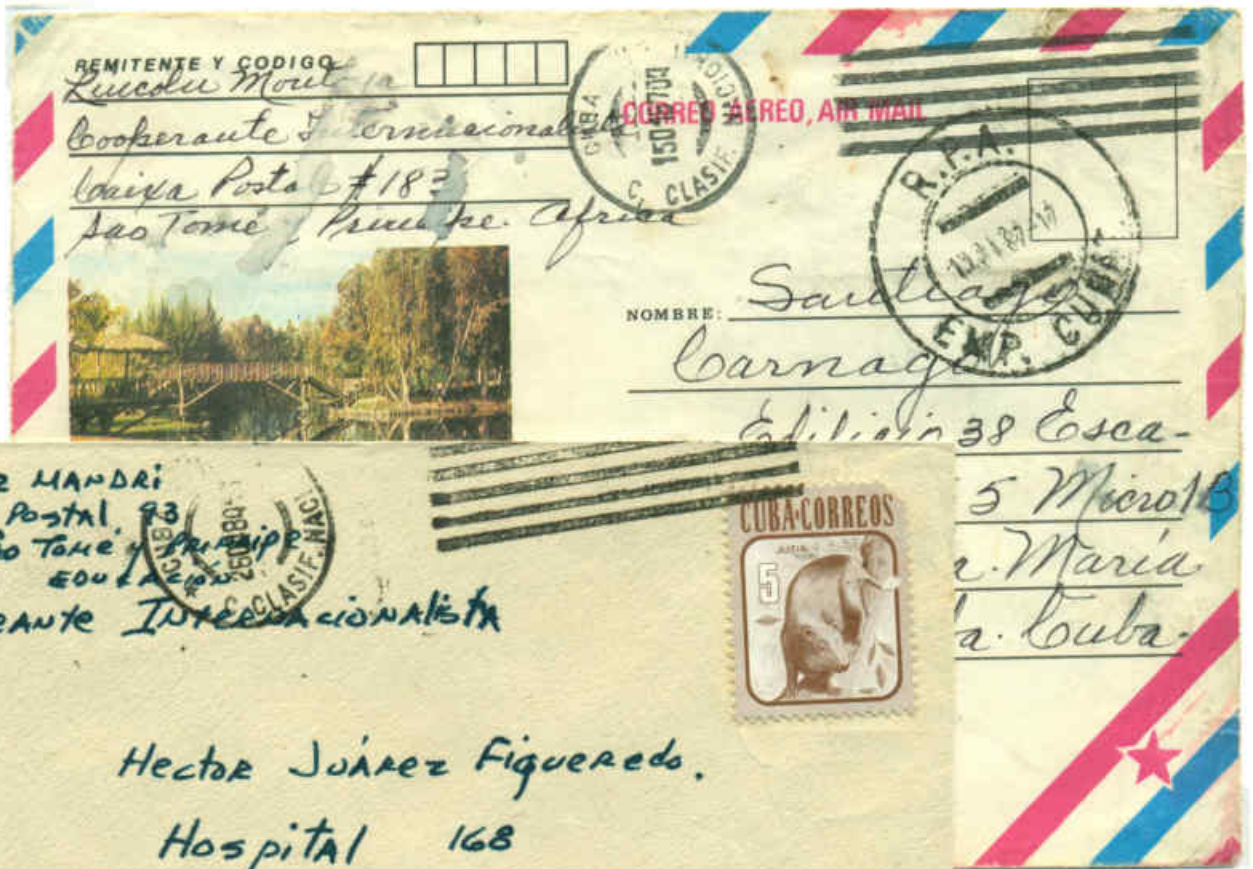 REMITENTE Y CODIGO
Cooperante Internacionalista
Caixa Postal #183
Sao Tomé y Principe. Africa
CUBA
C. CLASIF. NACIONAL
CORREO AEREO, AIR MAIL
R.P.A.
EXP. CUBA
NOMBRE: Santiago
Carnago
Edificio 38 Esca-
5 Micro 1B
María
Cuba.
MANDRI
Postal 93
Tomé y Principe
EDUCACIÓN
INTERNACIONALISTA
CUBA
C. CLASIF. NACI
CUBA·CORREOS
JUTIA
5
Hector Juárez Figueredo.
Hospital 168